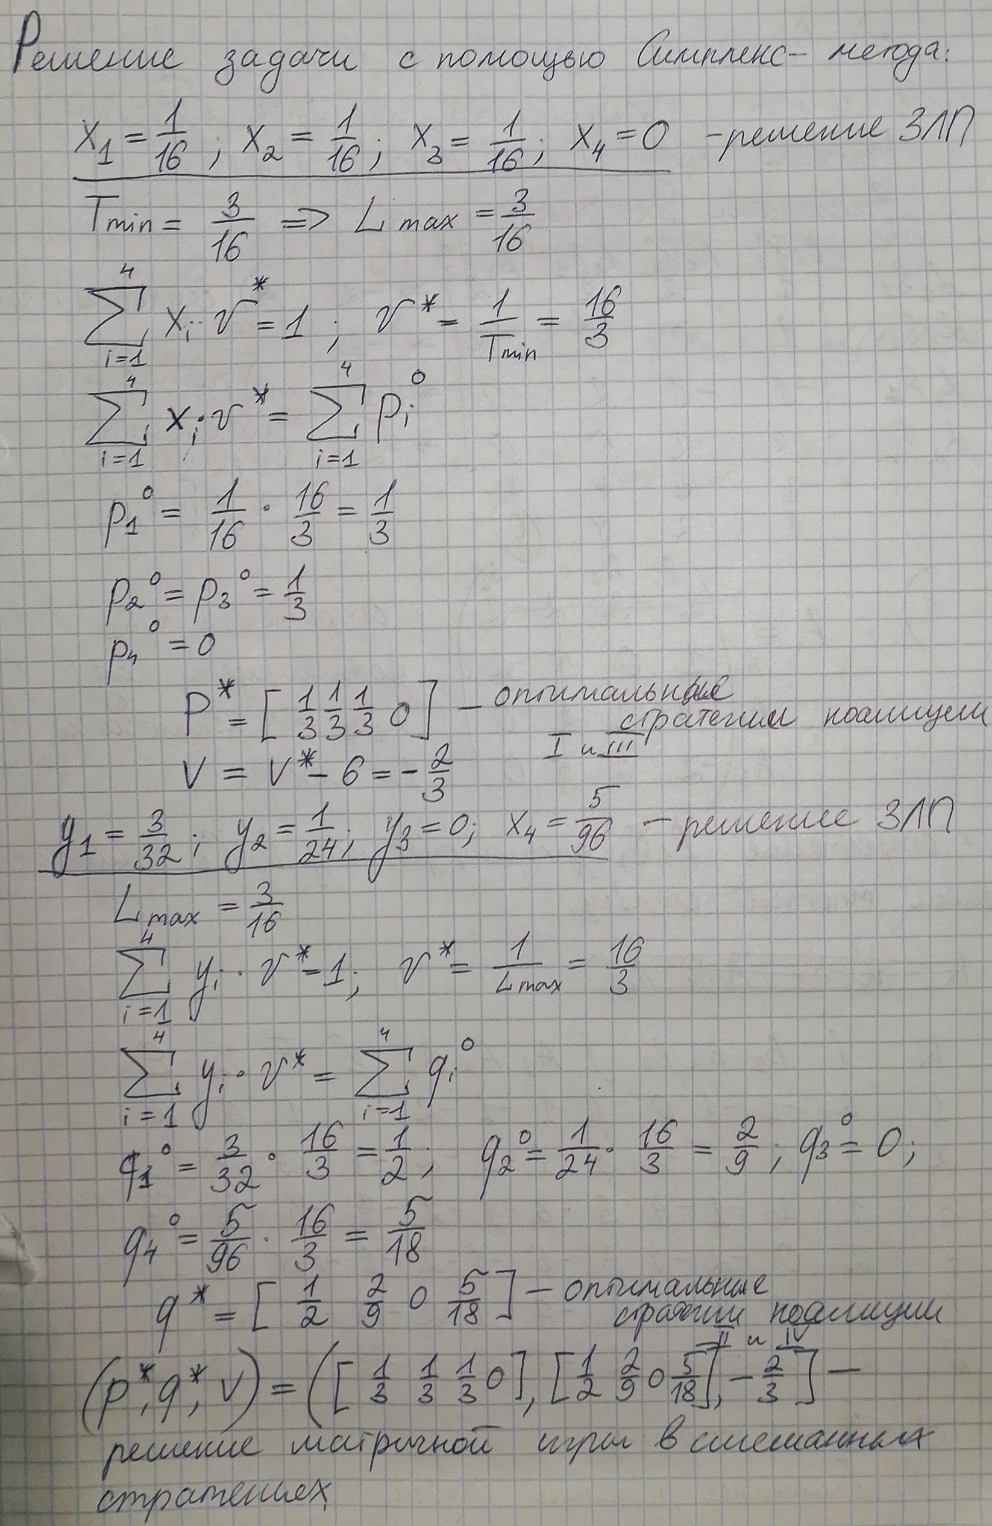 Решение задачи с помощью Симплекс- метода:
x₁ = 1/16 ; x₂ = 1/16; x₃ = 1/16; x₄ = 0 - решение ЗЛП
Tmin = 3/16 => Lmax = 3/16
∑_{i=1}^{4} xᵢ · v* = 1 ; v* = 1/Tmin = 16/3
∑_{i=1}^{4} xᵢ · v* = ∑_{i=1}^{4} pᵢ⁰
p₁⁰ = 1/16 · 16/3 = 1/3
p₂⁰ = p₃⁰ = 1/3
p₄⁰ = 0
P* = [1/3 1/3 1/3 0] - оптимальные
стратегии коалиции
I и III
V = V* - 6 = -2/3
y₁ = 3/32 ; y₂ = 1/24; y₃ = 0; x₄ = 5/96 - решение ЗЛП
Lmax = 3/16
∑_{i=1}^{4} yᵢ · v* = 1; v* = 1/Lmax = 16/3
∑_{i=1}^{4} yᵢ · v* = ∑_{i=1}^{4} qᵢ⁰
q₁⁰ = 3/32 · 16/3 = 1/2; q₂⁰ = 1/24 · 16/3 = 2/9 ; q₃⁰ = 0;
q₄⁰ = 5/96 · 16/3 = 5/18
q* = [1/2 2/9 0 5/18] - оптимальные
стратегии коалиции
II и IV
(p*, q*, V) = ([1/3 1/3 1/3 0], [1/2 2/9 0 5/18], -2/3] -
решение матричной игры в смешанных
стратегиях